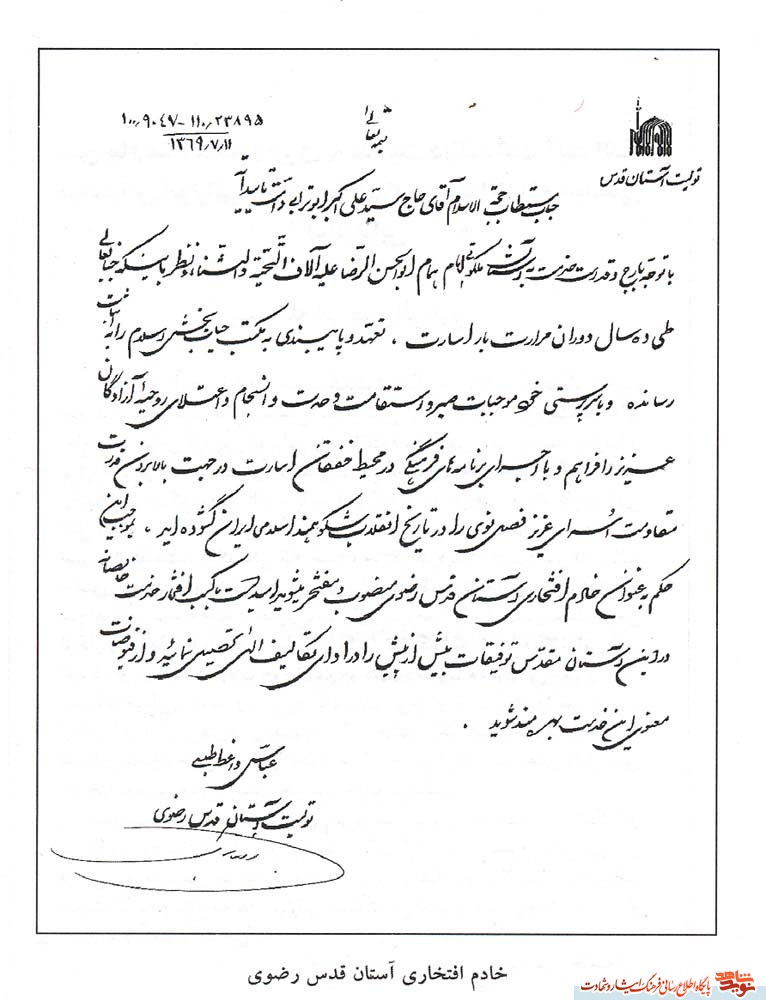 بسمه تعالی
۱۰۰٫۹۰۴۷-۱۱۰٫۲۳۸۹۵
۱۳۶۹٫۷٫۱۱
تولیت آستان قدس
جناب مستطاب حجة الاسلام آقای حاج سید علی اکبر ابوترابی دامت تاییداته
با توجه بارج و قدرت خدمت به آستان ملکوتی امام همام ابوالحسن الرضا علیه آلاف التحیة والثناء و نظر باینکه جنابعالی
طی ده سال دوران مرارت بار اسارت ، تعهد و پایبندی به مکتب حیاتبخش اسلام را به اثبات
رسانده و با سرپرستی خود موجبات صبر و استقامت و وحدت و انسجام و اعتلای روحیه آزادگان
عزیز را فراهم و با اجرای برنامه‌های فرهنگی در محیط خفقان اسارت در جهت بالا بردن قدرت
مقاومت اسرای عزیز فصلی نوی را در تاریخ انقلاب شکوهمند اسلامی ایران گشوده اید ، بموجب این
حکم به عنوان خادم افتخاری آستان قدس رضوی منصوب و مفتخر میشوید امید است با کسب افتخار خدمت خالصانه
در این آستان مقدس توفیقات بیش از پیش را در ادای تکالیف الهی تحصیل نمائید و از فیوضات
معنوی این خدمت بهره مند شوید .
عباس واعظ طبسی
تولیت آستان قدس رضوی
خادم افتخاری آستان قدس رضوی
نوید شاهد
پایگاه اطلاع رسانی فرهنگ ایثار و شهادت